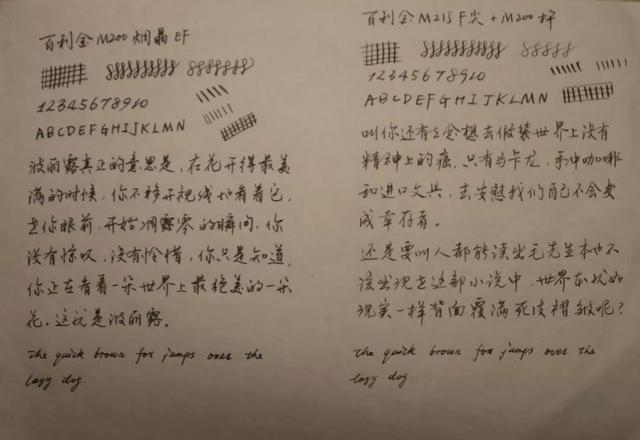 百利金M200烟晶EF
12345678910
ABCDEFGHIJKLMN
波丽露真正的意思是，在花开得最美
满的时候，你不移开视线地看着它，
在你眼前，开始凋露零的瞬间，你
没有惊叹，没有怜惜，你只是知道，
你正在看着一朵世界上最绝美的一朵
花。这就是波丽露。
the quick brown fox jumps over the
lazy dog.
百利金M215F尖+M200杆
12345678910
ABCDEFGHIJKLMN
叫你还有念想去假装世界上没有
精神上的癌，只有马卡龙，手冲咖啡
和进口文具，去安慰我们自己不会变
成幸存者。
还是要叫人都能读出毛先生本也不
该出现在这部小说中，世界本就如
现实一样背面覆满死皮褶皱呢？
the quick brown fox jumps over the
lazy dog.